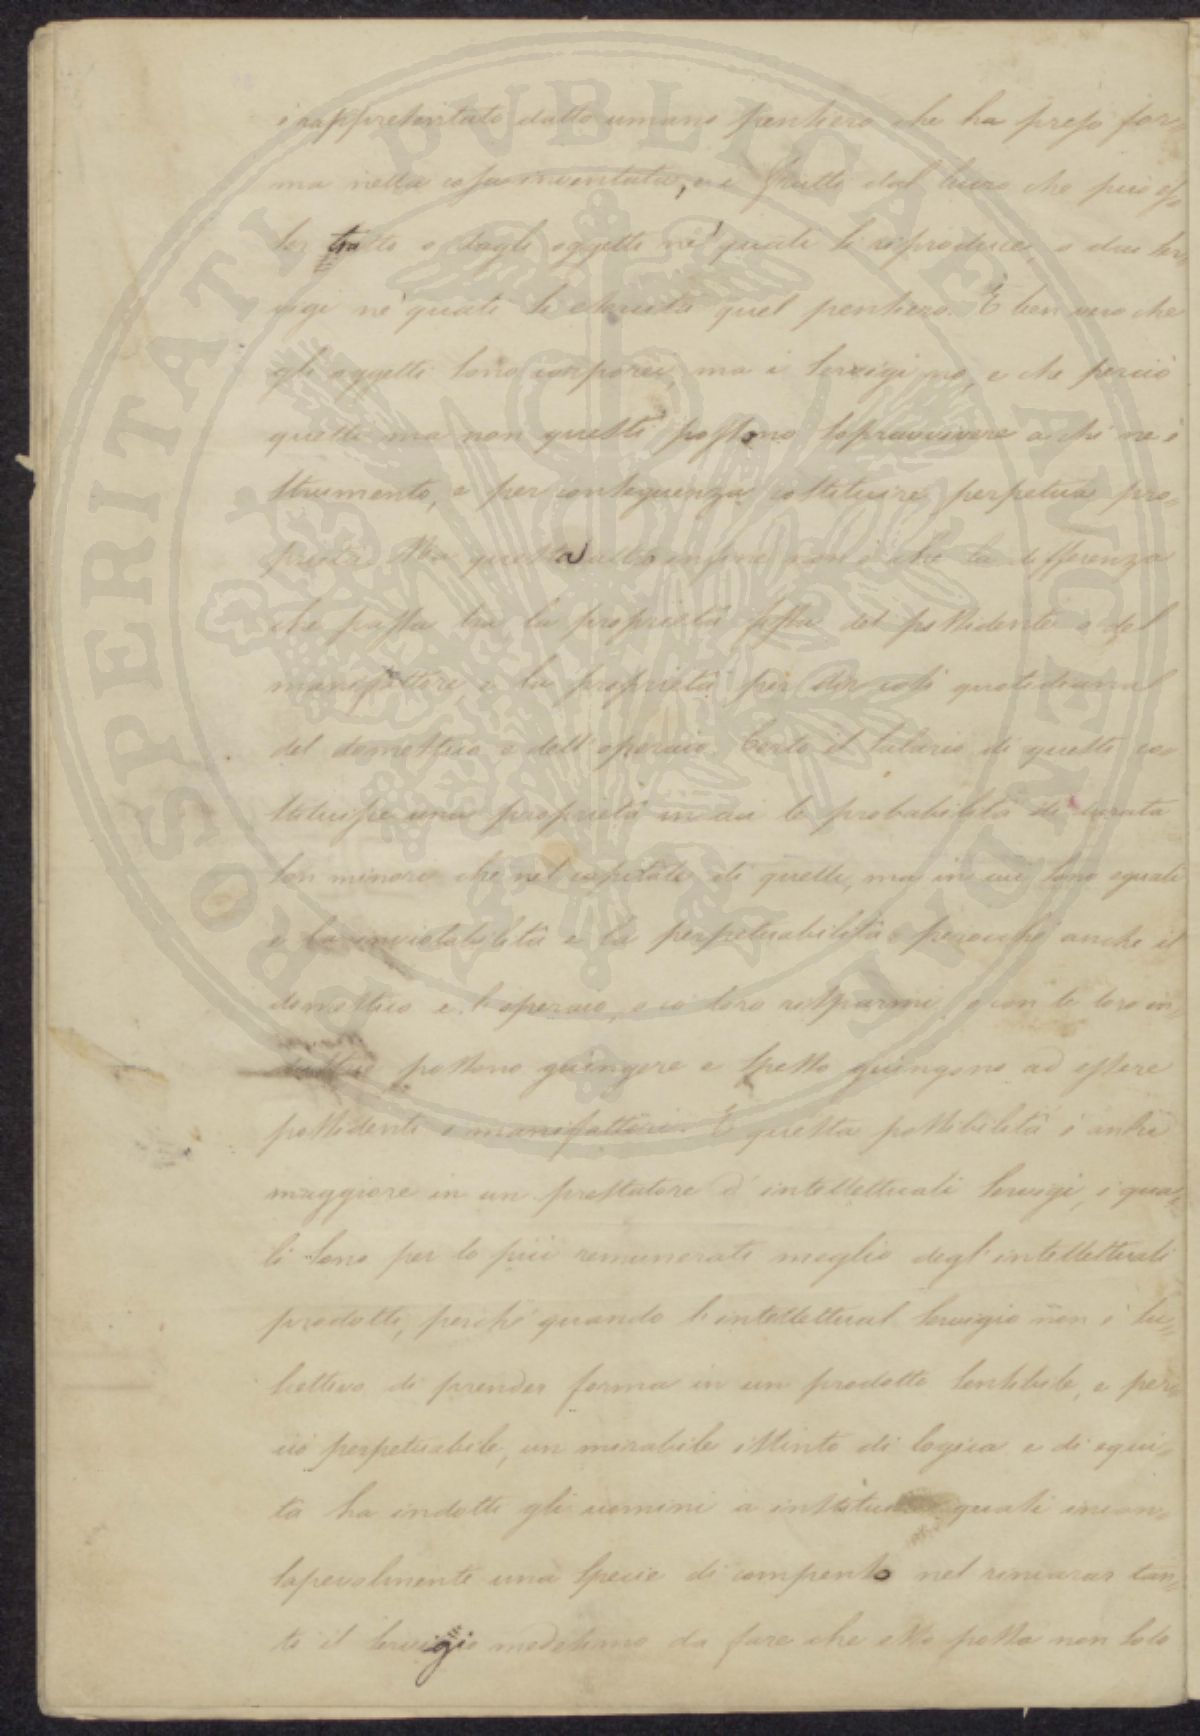 è rappresentato dallo umano pensiero che ha preso for=
ma nella cosa inventata, e è frutto dal lucro che può es=
ser tratto o dagli oggetti ne' quali si riproduce, o dai ser=
vigi ne' quali si sfrutta quel pensiero. È ben vero che
gli oggetti sono corporei, ma i servigi no, e che perciò
quelli ma non questi possono sopravvivere a chi ne è
strumento, e per conseguenza costituire perpetua pro=
prietà. Ma questa alla infine non è che la differenza
che passa tra la proprietà fissa del possidente o del
manifattore, e la proprietà per dir così quotidiana
del domestico e dell'operaio. Certo il salario di questi co=
stituisce una proprietà in cui le probabilità di durata
son minori che nel capitale di quelli, ma in cui sono eguali
e la inviolabilità e la perpetuabilità; perocchè anche il
domestico e l'operaio, o co' loro risparmi, o con le loro in=
dustrie possono giungere e spesso giungono ad essere
possidenti o manifattori. E questa possibilità è anche
maggiore in un prestatore d'intellettuali servigi, i qua=
li sono per lo più remunerati meglio degl'intellettuali
prodotti, perchè quando l'intellettual servigio non è su=
scettivo di prender forma in un prodotto sensibile, e per=
ciò perpetuabile, un mirabile istinto di logica e di equi=
tà ha indotti gli uomini a instituire quasi incon=
sapevolmente una specie di compenso nel rincarar tan=
to il servigio medesimo da fare che esso possa non solo
PROSPERITATI PUBLICAE AUGENDAE